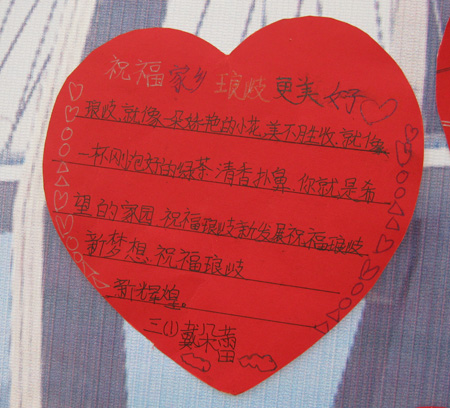 祝福家乡琅岐更美好
琅岐,就像一朵娇艳的小花,美不胜收,就像
一杯刚泡好的绿茶,清香扑鼻,你就是希
望的家园,祝福琅岐新发展,祝福琅岐
新梦想,祝福琅岐
新辉煌。
三(1)戴朵蕾